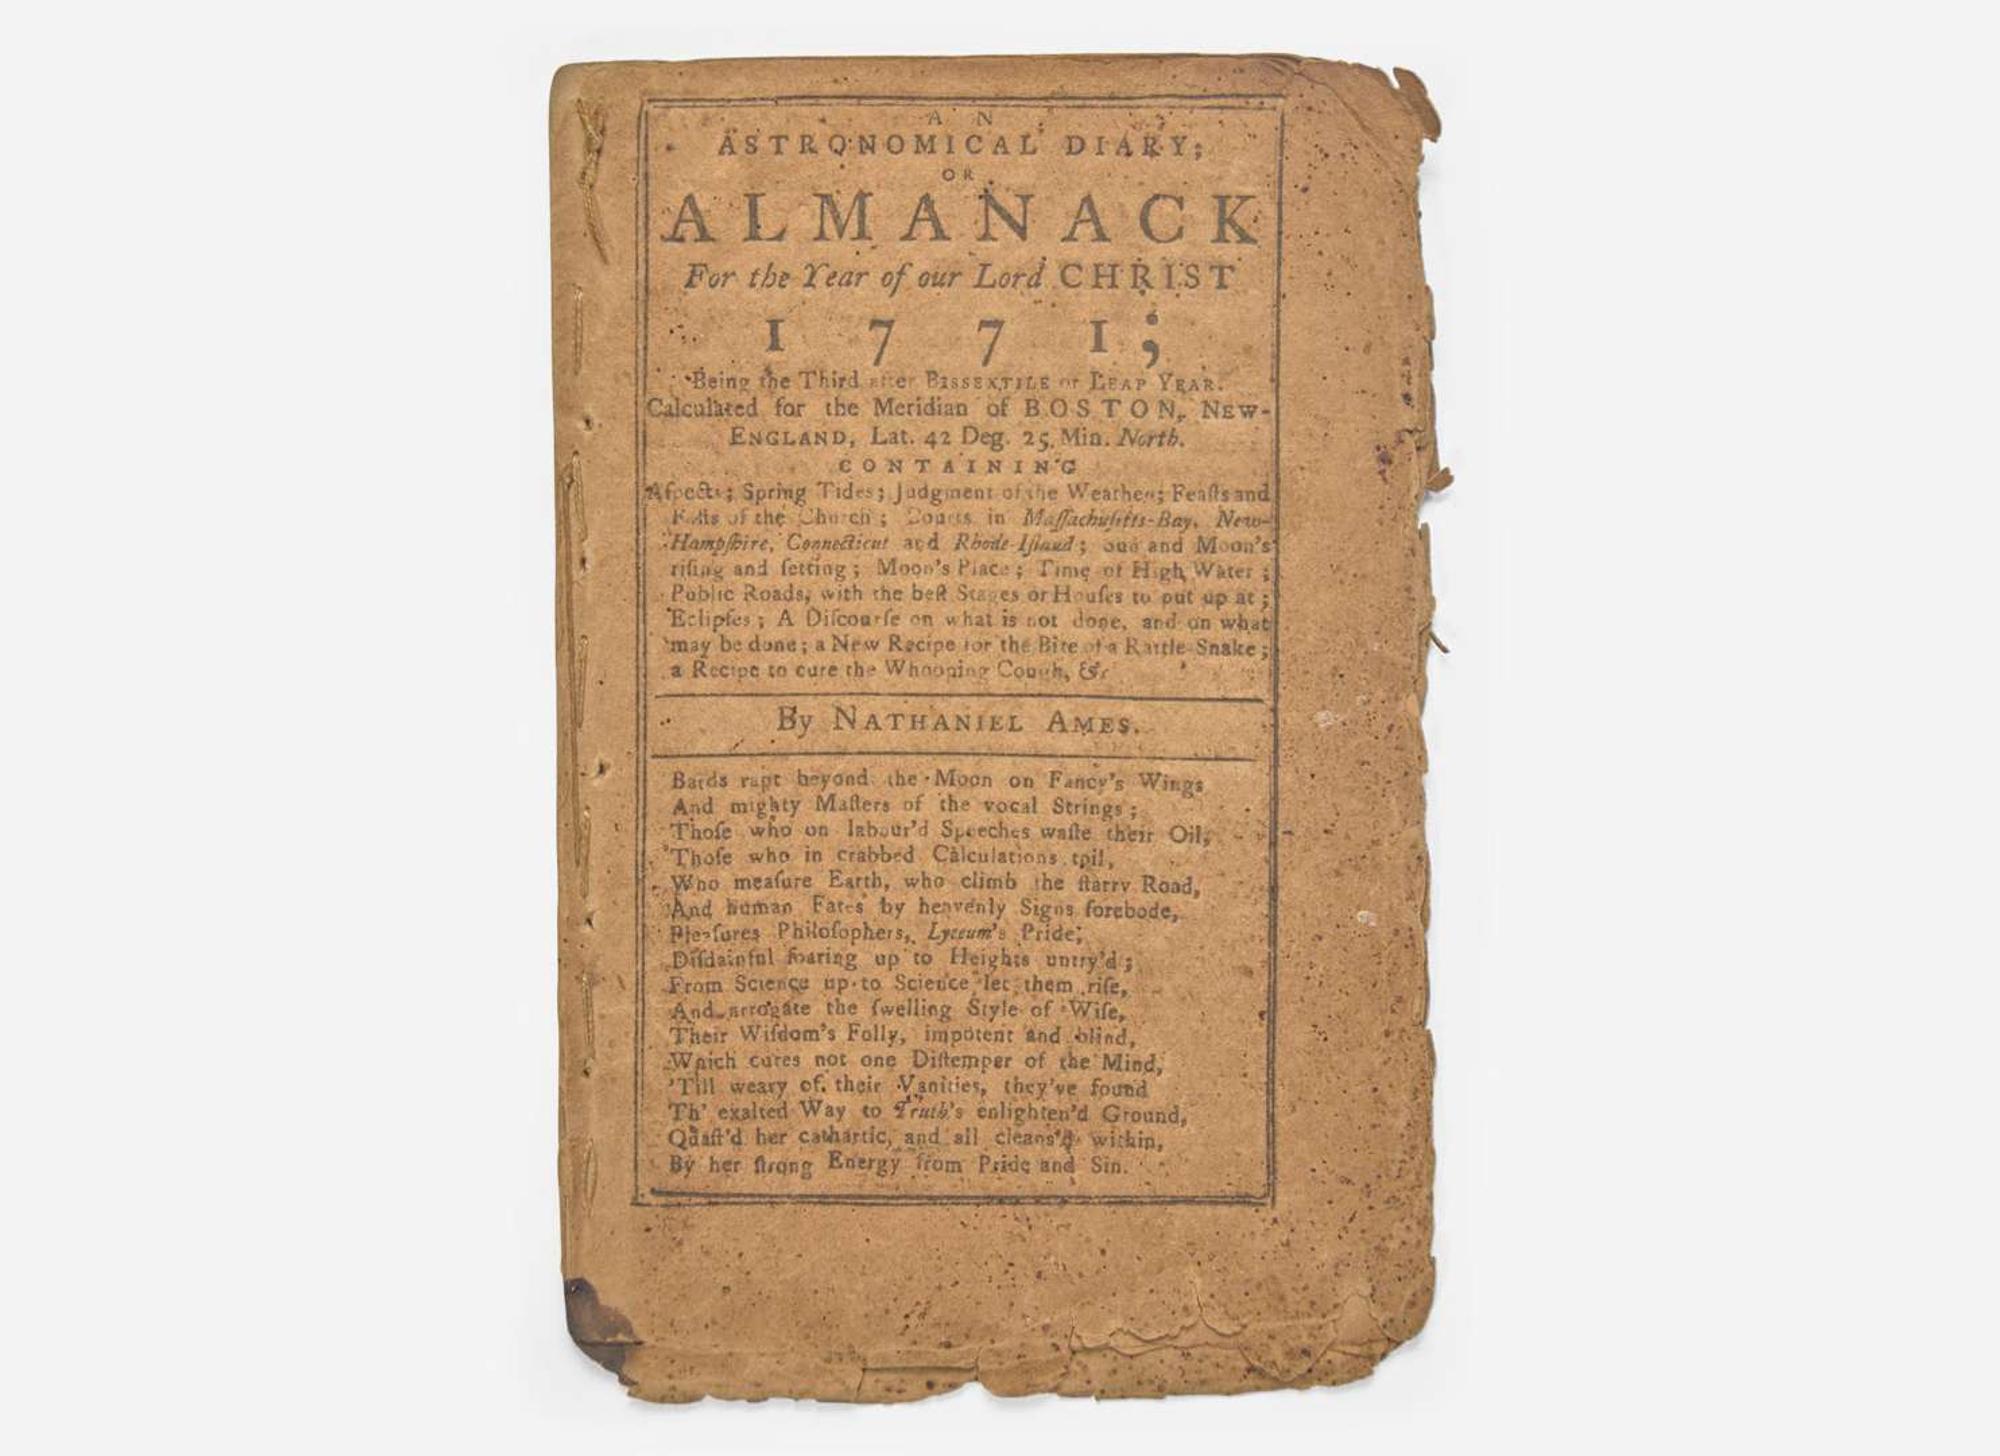 AN
ASTRONOMICAL DIARY;
OR
ALMANACK
For the Year of our Lord CHRIST
1771;
Being the Third after BISSEXTILE or LEAP YEAR.
Calculated for the Meridian of BOSTON, NEW-
ENGLAND, Lat. 42 Deg. 25 Min. North.
CONTAINING
Aſpects; Spring Tides; Judgment of the Weather; Feaſts and
Faſts of the Church; Courts in Maſſachuſetts-Bay, New-
Hampſhire, Connecticut and Rhode-Iſland; and Moon's
riſing and ſetting; Moon's Place; Time of High Water;
Public Roads, with the beſt Stages or Houſes to put up at;
Eclipſes; A Diſcourſe on what is not done, and on what
may be done; a New Recipe for the Bite of a Rattle-Snake;
a Recipe to cure the Whooping Cough, &c
By NATHANIEL AMES.
Bards rapt beyond the Moon on Fancy's Wings
And mighty Maſters of the vocal Strings;
Thoſe who on labour'd Speeches waſte their Oil,
Thoſe who in crabbed Calculations toil,
Who meaſure Earth, who climb the ſtarry Road,
And human Fates by heavenly Signs forebode,
Pleaſures Philoſophers, Lyceum's Pride;
Diſdainful ſoaring up to Heights untry'd;
From Science up to Science let them riſe,
And arrogate the ſwelling Style of Wiſe,
Their Wiſdom's Folly, impotent and blind,
Which cures not one Diſtemper of the Mind,
'Till weary of their Vanities, they've found
Th' exalted Way to Truth's enlighten'd Ground,
Quaff'd her cathartic, and all cleans'd within,
By her ſtrong Energy from Pride and Sin.